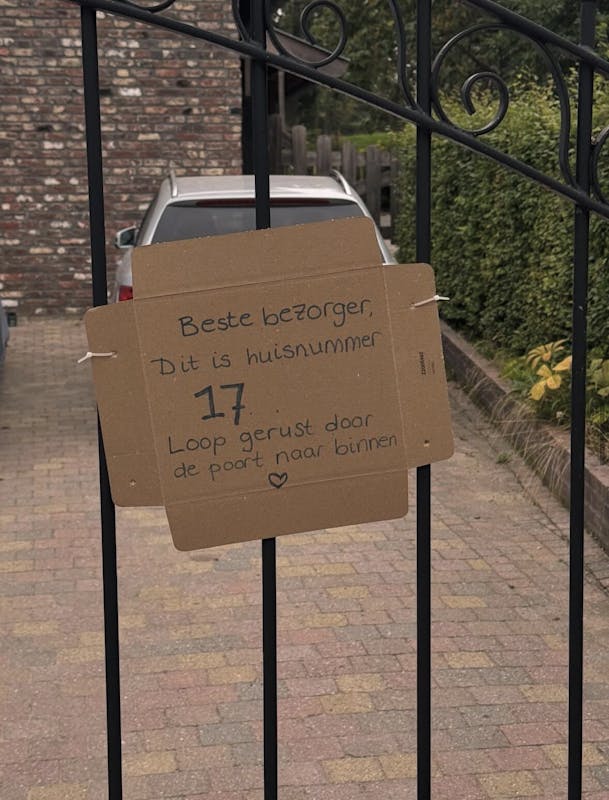 Beste bezorger,
Dit is huisnummer
17
Loop gerust door
de poort naar binnen